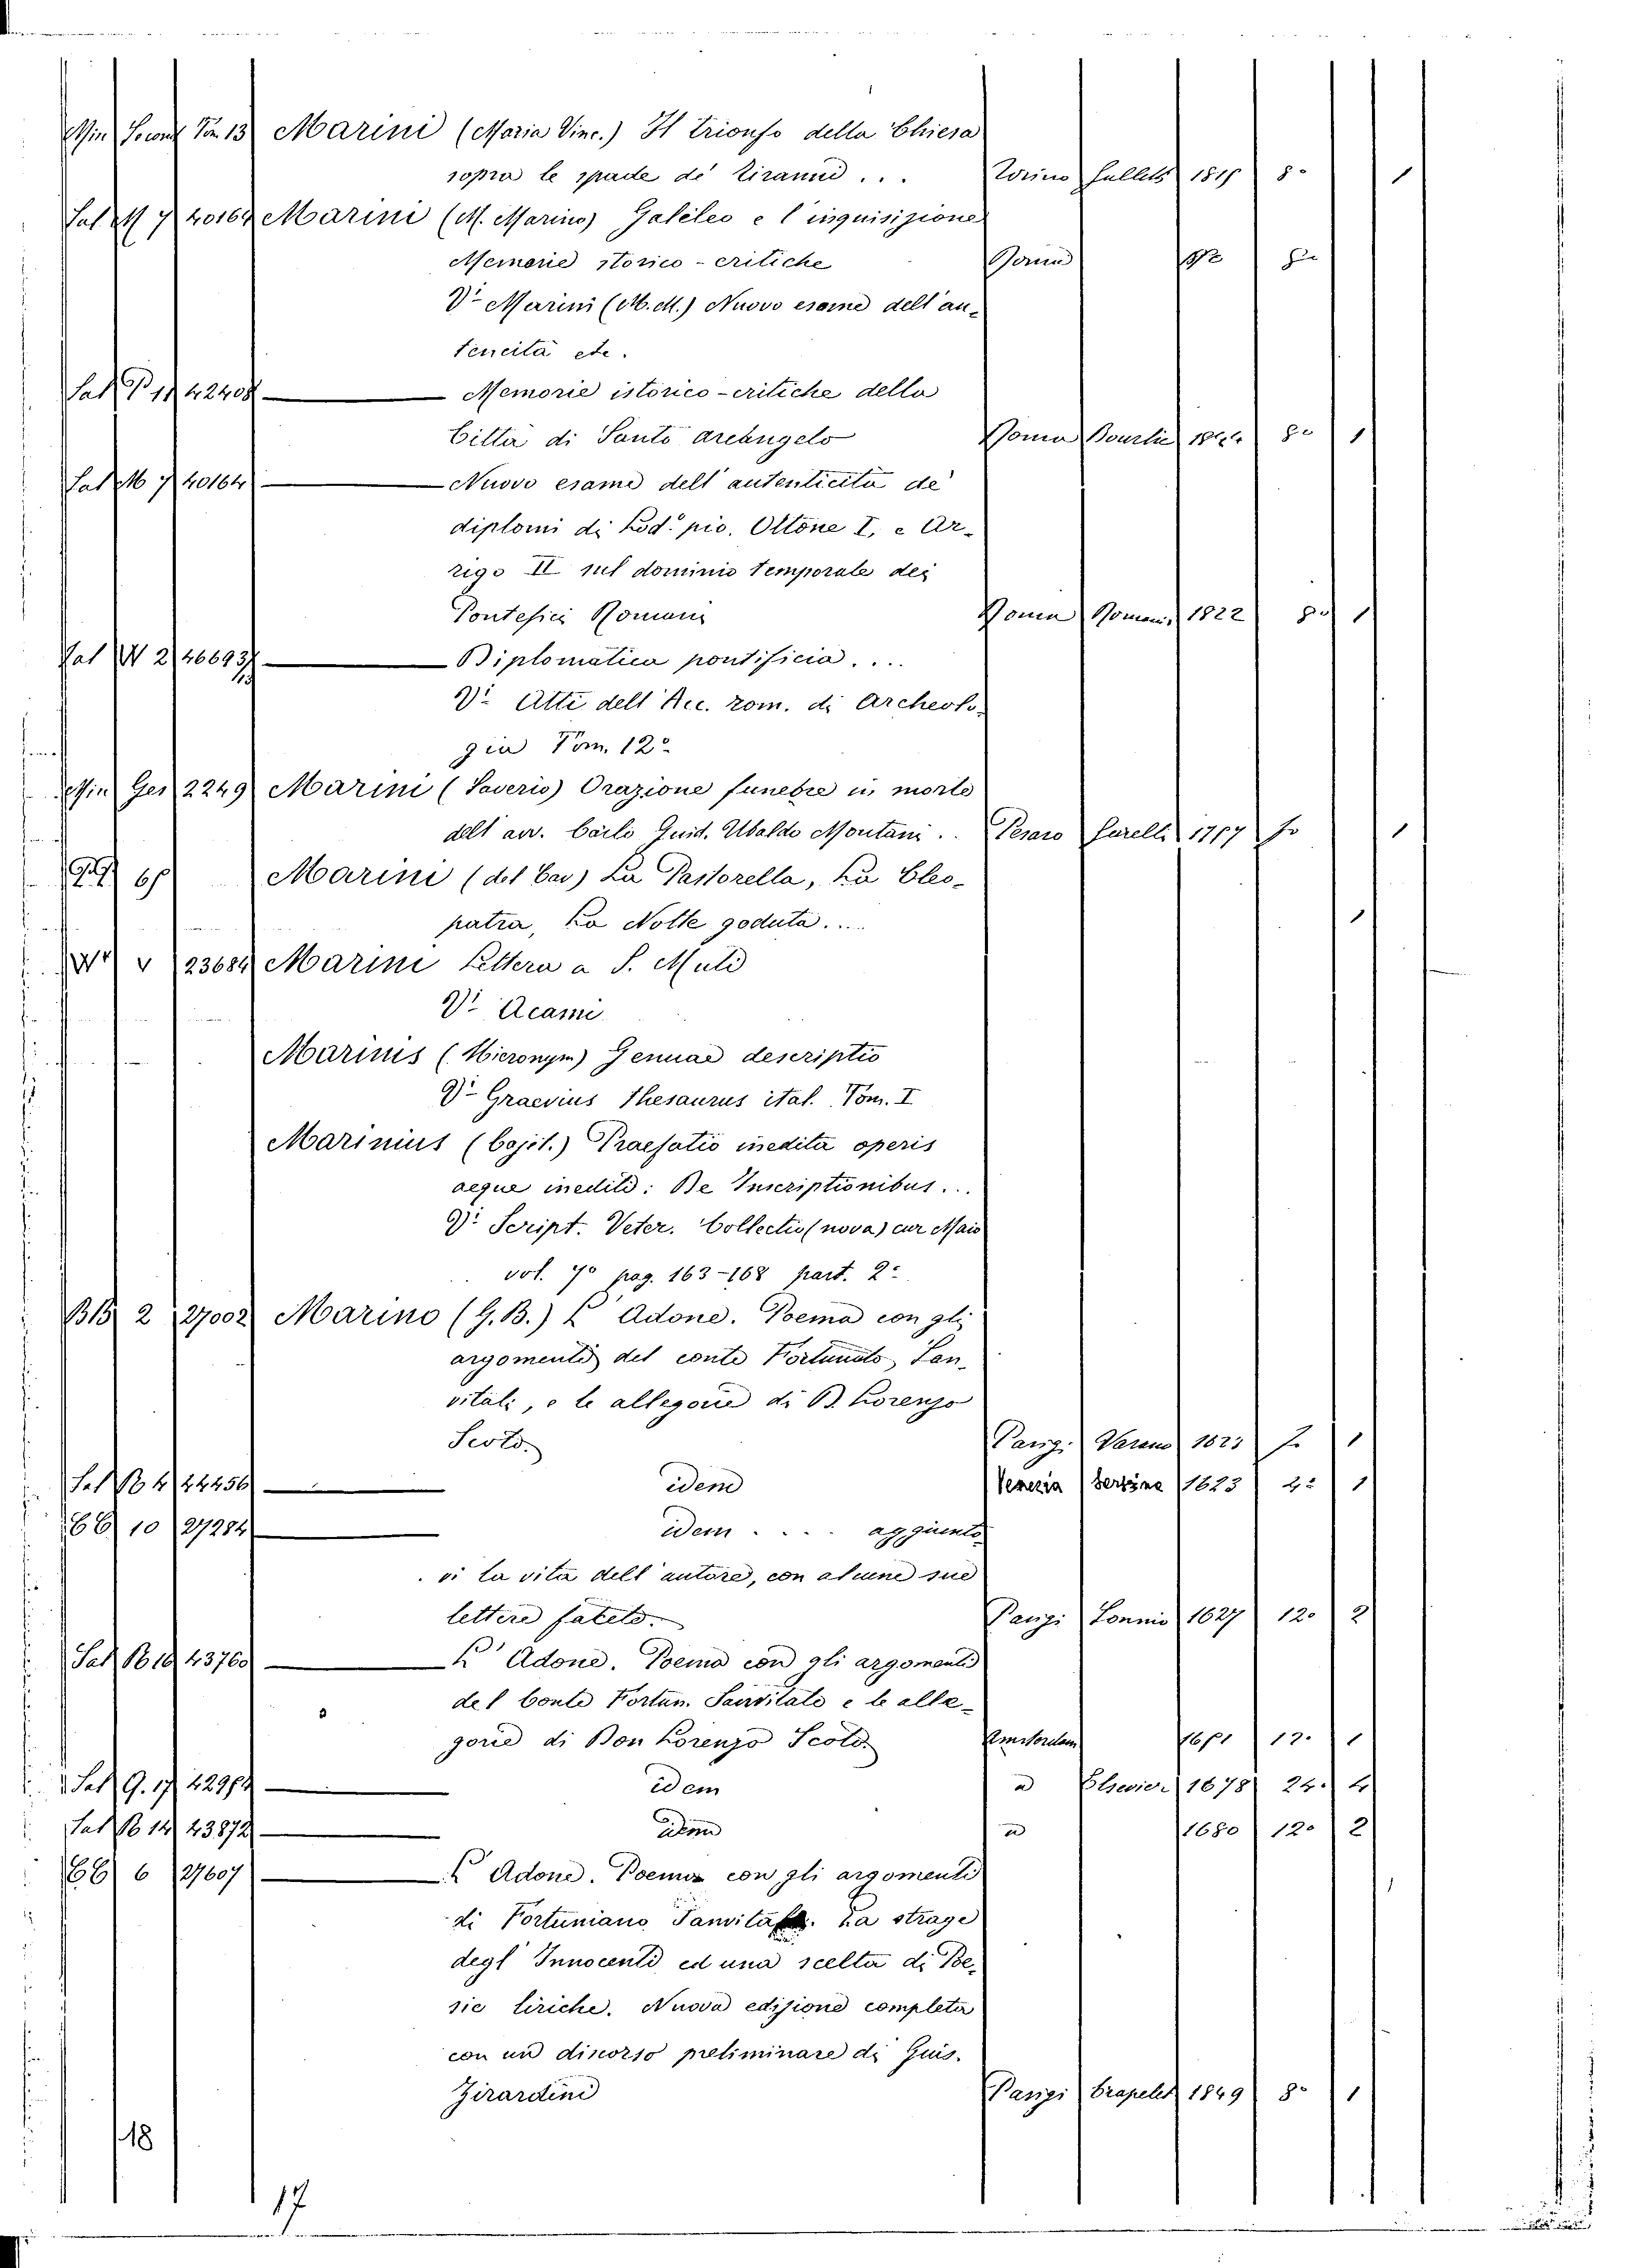 Min Tom. 13 Marini (Maria Vinc.) Il trionfo della Chiesa
sopra le spade de' tiranni . . . Torino 8°. 1
Sal M 7 40164 Marini (M. Marino) Galileo e l'inquisizione
Memorie storico-critiche Roma 8°
V. Marini (M.M.) Nuovo esame dell'au-
tencità etc.
Sal P 11 42408 — Memorie istorico-critiche della
Città di Santo arcangelo Roma Bourlié 8° 1
Sal M 7 40164 — Nuovo esame dell' autenticità de'
diplomi di Lod. pio. Ottone I, e Ar-
rigo II sul dominio temporale dei
Pontefici Romani Roma Roman. 1822 8° 1
Sal W 2 46693 — Diplomatica pontificia....
V. Atti dell' Acc. rom. di Archeolo-
gia Tom. 12°
Min Ges 2249 Marini (Saverio) Orazione funebre in morte
dell' avv. Carlo Guid. Ubaldo Montani.. Pesaro 1
Marini (del Cav) La Pastorella, La Cleo-
patra, La Notte goduta.... 1
V 23684 Marini Lettera a S. Muli
V. Acami
Marinis (Hieronym) Genuae descriptio
V. Graevius Thesaurus ital. Tom. I
Marinius (Cajet.) Praefatio inedita operis
aeque inediti: De Inscriptionibus...
V. Script. Veter. Collectio (nova) cur Maio
vol. 7° pag. 163-168 part. 2ª
BB 2 27002 Marino (G.B.) L' Adone. Poema con gli
argomenti del conte Fortunato San-
vitali, e le allegorie di D. Lorenzo
Scoto. Parigi Varano 1623 1
Sal B 4 44456 — idem Venezia 1623 4° 1
BB 10 27284 — idem .... aggiunto-
vi la vita dell' autore, con alcune sue
lettere facete. Parigi Sonnio 1627 12° 2
Sal B 10 43760 — L' Adone. Poema con gli argomenti
del Conte Fortun. Sanvitale e le alle-
gorie di Don Lorenzo Scoto. Amsterdam 12° 1
Sal G. 17 42984 — idem a Elsevier 1678 24° 4
Sal B 14 43872 — idem a 1680 12° 2
BB 6 27607 — L' Adone. Poema con gli argomenti
di Fortuniano Sanvitale. La strage
degl' Innocenti ed una scelta di Poe-
sie liriche. Nuova edizione completa
con un discorso preliminare di Gius.
Zirardini Parigi Crapelet 1849 8° 1
18
17